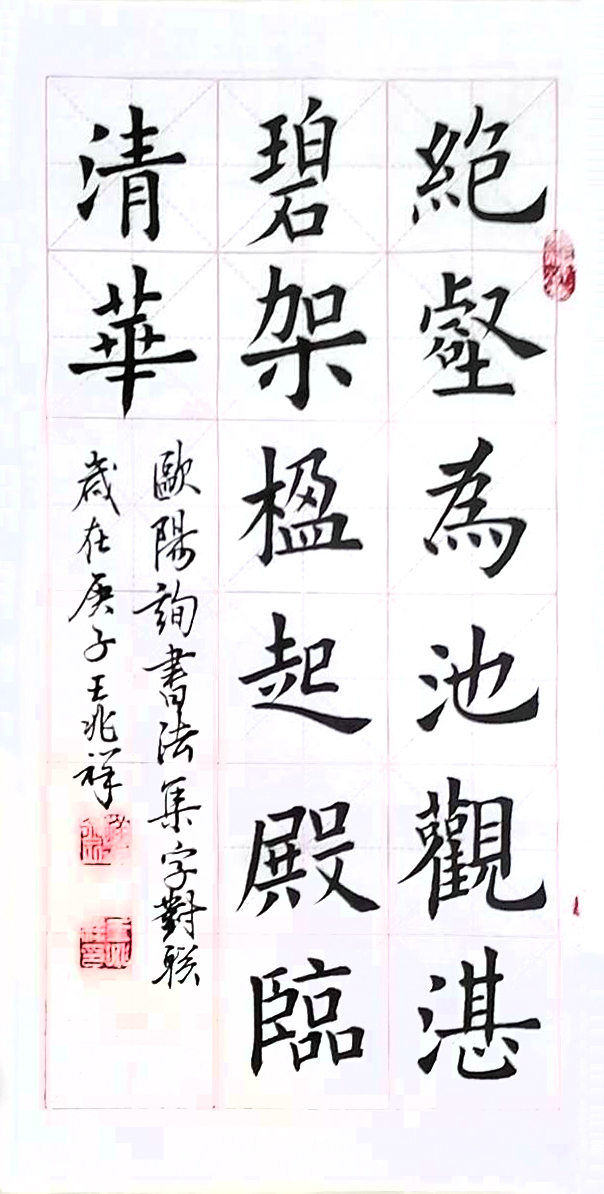 絶壑為池觀湛
碧架楹起殿臨
清華
歐陽詢書法集字對联
歳在庚子王兆祥